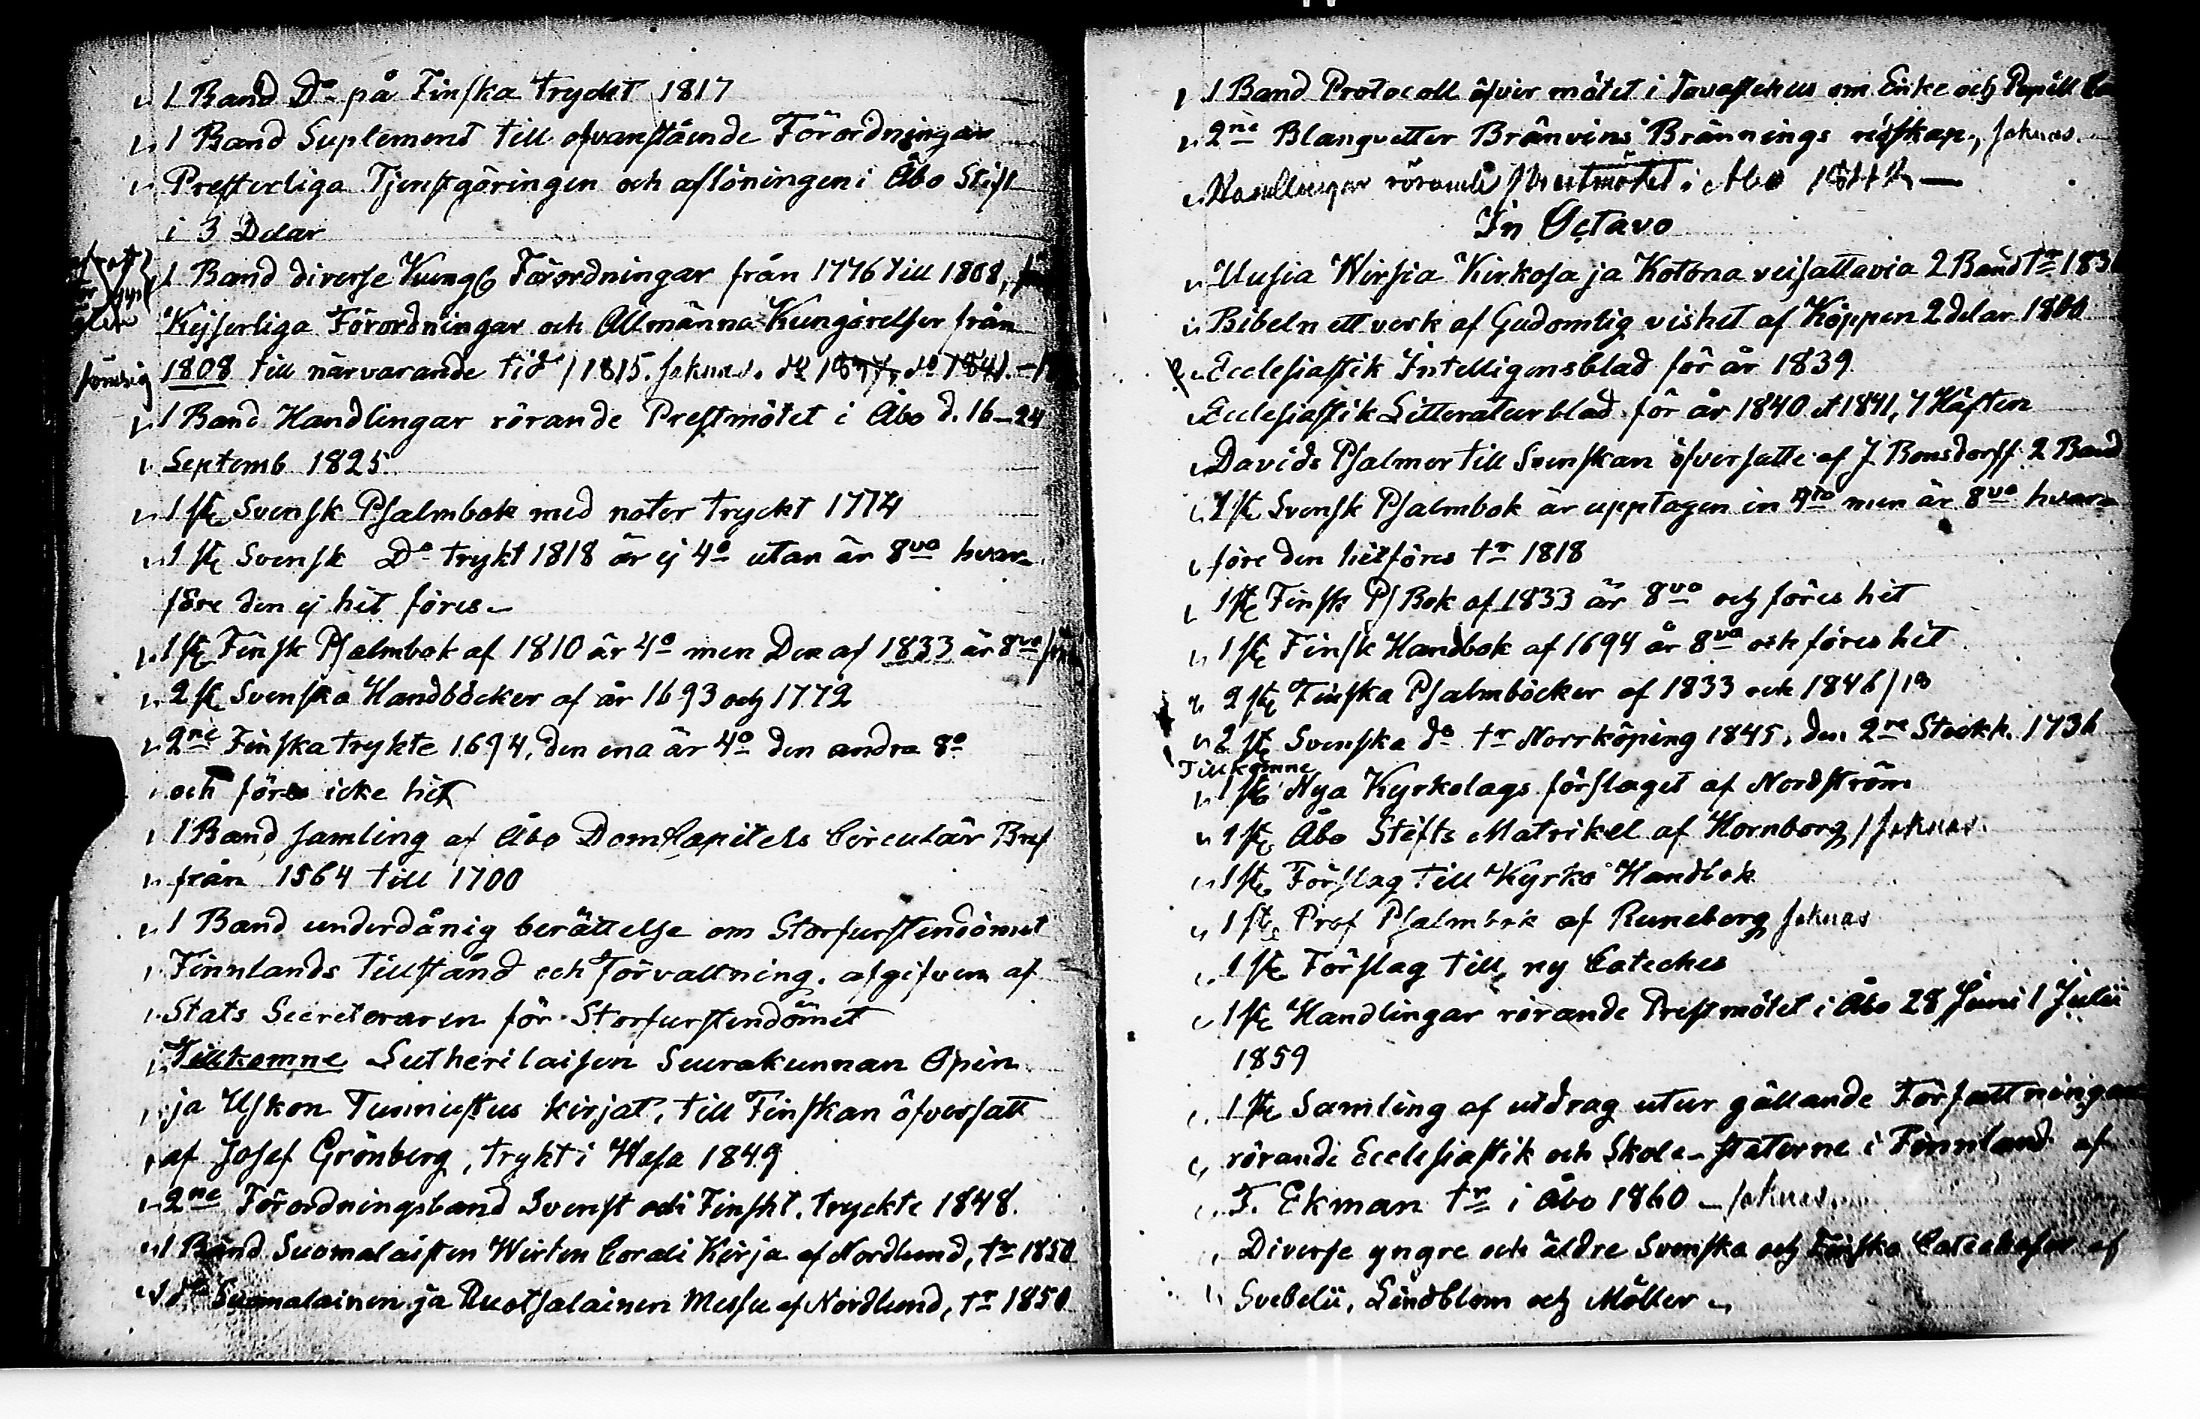 1 Band D:o på Finska tryckt 1817
1 Band Suplement till ofvanstående Förordningar
Presterliga Tjenstgöringen och aflöningen i Åbo Stift
i 3 Delar
1 Band diverse Kungl Förordningar från 1776 till 1808,
Kejserliga Förordningar och Allmänna Kungörelser från
1808 till närvarande tid / 1815. saknas.
1 Band Handlingar rörande Prestmötet i Åbo d. 16–24
Septemb 1825.
1 st Svensk Psalmbok med noter tryckt 1774
1 st Svensk D:o trykt 1818 är ej 4:o utan är 8:vo hvar-
före den ej hit föres.
1 st Finsk Psalmbok af 1810 är 4:o men Den af 1833 är 8:vo
2 st Svenska Handböcker af år 1693 och 1772
2:ne Finska trykte 1694, den ena är 4:o den andra 8:o
och föres icke hit
1 Band samling af Åbo DomCapitels Circulär Bref
från 1564 till 1700
1 Band underdånig berättelse om Storfurstendömet
Finnlands Tillstånd och förvaltning. afgifven af
Stats Secreteraren för Storfurstendömet
Tillkomne Lutherilaisen Seurakunnan Opin
ja Uskon Tunnustus kirjat, till Finskan öfversatt
af Josef Grönberg, trykt i Wasa 1849
2:ne Förordningsband Svenst och Finskt. tryckte 1848.
1 Band Suomalaisten Wirten Corali Kirja af Nordlund, tr 1850
1 d:o Suomalainen ja Ruotsalainen Messu af Nordlund, tr 1850
1 Band Protocoll öfver mötet i Tavastehus om Enke och Pupill
2:ne Blanqvetter Bränvins Brännings redskap, saknas.
Handlingar rörande Prestmötet i Åbo
In Octavo
Uusia Wirsia Kirkosa ja Kotona veisattavia 2 Band tr
Bibeln ett verk af Gudomlig vishet af Köppen 2 delar 1800
Ecclesiastik Intelligensblad för år 1839
Ecclesiastik Litteraturblad för år 1840 et 1841, 7 Häften
Davids Psalmer till Svenskan öfversatte af J. Bonsdorff 2 Band
1 st Svensk Psalmbok är upptagen in 4:to men är 8:vo hvar-
före den hitföres tr 1818
1 st Finsk Ps Bok af 1833 är 8:vo och föres hit
1 st Finsk Handbok af 1694 är 8:vo och föres hit
2 st Finska Psalmböcker af 1833 och 1846
2 st Svenska d:o tr Norrköping 1845, den 2:ne Stockh. 1736
Tillkomne
1 st Nya Kyrkolags förslaget af Nordström
1 st Åbo Stifts Matrikel af Hornborg / saknas.
1 st Förslag till Kyrko Handbok
1 st Prof Psalmbok af Runeberg saknas
1 st Förslag till ny Cateches
1 st Handlingar rörande Prestmötet i Åbo 28 Juni 1 Julii
1859
1 st Samling af utdrag utur gällande Författningar
rörande Ecclesiastik och Skole-staterne i Finnland af
F. Ekman tr i Åbo 1860 – saknas.
Diverse yngre och äldre Svenska och Finska Catecheser af
Svebelii, Lindblom och Möller